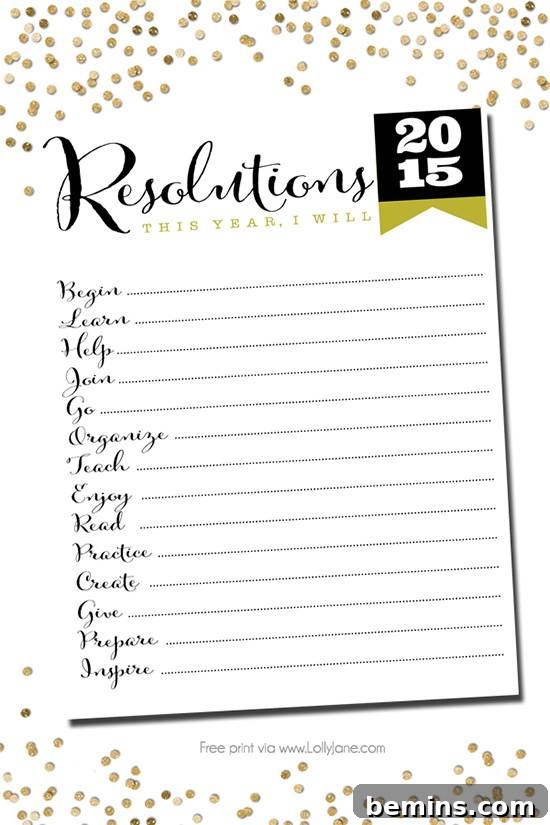 Resolutions
20
15
THIS YEAR, I WILL
Begin
Learn
Help
Join
Go
Organize
Teach
Enjoy
Read
Practice
Create
Give
Prepare
Inspire
Free print via www.LollyJane.com
bemins.com